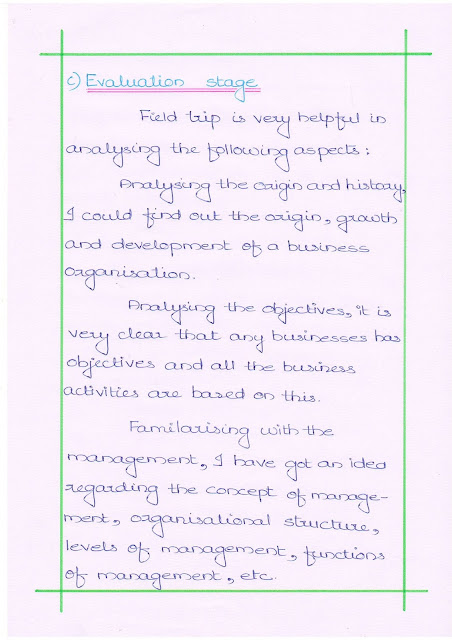 c) Evaluation stage
Field trip is very helpful in
analysing the following aspects:
Analysing the origin and history,
I could find out the origin, growth
and development of a business
organisation.
Analysing the objectives, it is
very clear that any businesses has
objectives and all the business
activities are based on this.
Familarising with the
management, I have got an idea
regarding the concept of manage-
ment, organisational structure,
levels of management, functions
of management, etc.